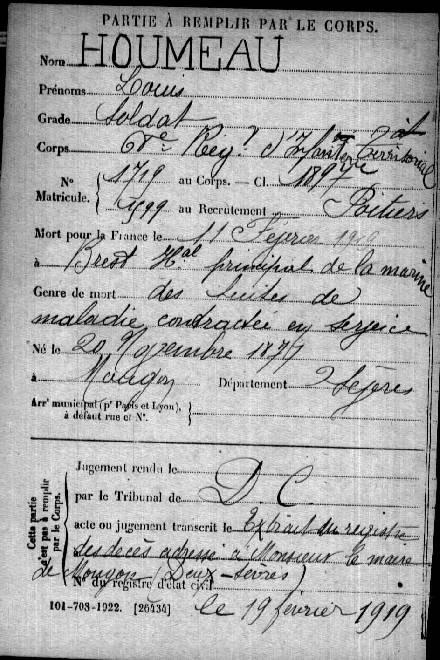 PARTIE À REMPLIR PAR LE CORPS.
Nom HOUMEAU
Prénoms Louis
Grade Soldat
Corps 67e Regt d'Infanterie Territorial
N° 1719 au Corps. — Cl. 1897
Matricule. 499 au Recrutement Poitiers
Mort pour la France le 11 Février
à Brest Hal principal de la marine
Genre de mort des suites de
maladie contractée en service
Né le 20 Novembre 1877
à Mougon Département 2 Sèvres
Arrt municipal (pr Paris et Lyon),
à défaut rue et N°.
Cette partie
n'est pas à remplir
par le Corps.
Jugement rendu le
par le Tribunal de D C
acte ou jugement transcrit le Extrait du registre
des décès adressé à Monsieur le maire
de Mougon (Deux-Sèvres)
N° du registre d'état civil
le 19 février 1919
101-708-1922. [26434]